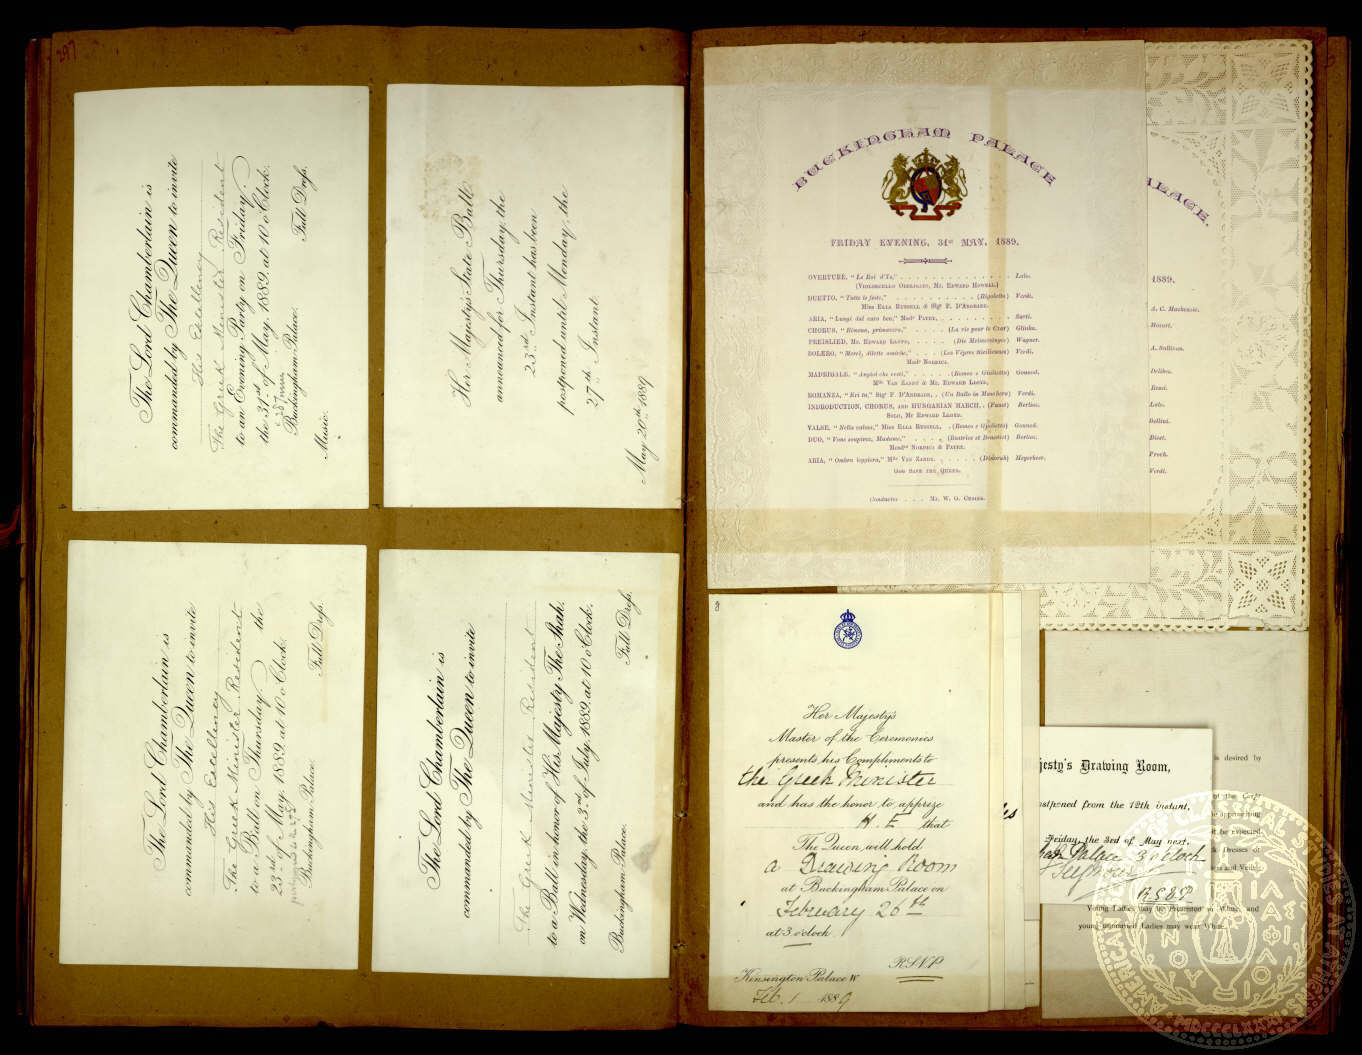 297
The Lord Chamberlain is
commanded by The Queen to invite
His Excellency
The Greek Minister Resident
to an Evening Party on Friday
the 31st of May, 1889, at 10 o'Clock.
Buckingham Palace.
Music.
Full Dress.
Her Majesty's State Ball
announced for Thursday, the
23rd Instant has been
postponed until Monday, the
27th Instant.
May 20th 1889
The Lord Chamberlain is
commanded by The Queen to invite
His Excellency
The Greek Minister Resident
to a Ball on Thursday the
23rd of May, 1889, at 10 o'Clock.
postponed to the 27th
Buckingham Palace.
Full Dress.
The Lord Chamberlain is
commanded by The Queen to invite
The Greek Minister Resident
to a Ball in honor of His Majesty The Shah,
on Wednesday the 3rd of July, 1889, at 10 o'Clock.
Buckingham Palace.
Full Dress.
BUCKINGHAM PALACE
FRIDAY EVENING, 31st MAY, 1889.
OVERTURE, "Le Roi d'Ys," . . . Lalo.
(Violoncello Obbligato, Mr. Edward Howell)
DUETTO, "Tutte le feste," . . . (Rigoletto) Verdi.
Miss Ella Russell & Sigr F. D'Andrade.
ARIA, "Lungi dal caro ben," Madr Patey, . . . Sarti.
CHORUS, "Rimena, primavera," . . . (La vie pour le Czar) Glinka.
PREISLIED, Mr. Edward Lloyd, . . . (Die Meistersinger) Wagner.
BOLERO, "Mercé, dilette amiche," . . . (Les Vêpres Siciliennes) Verdi.
Made Nordica.
MADRIGALE, "Angiol che vesti," . . . (Romeo e Giulietta) Gounod.
Mlle Van Zandt & Mr. Edward Lloyd.
ROMANZA, "Eri tu," Sigr F. D'Andrade, . (Un Ballo in Maschera) Verdi.
INDRODUCTION, CHORUS, AND HUNGARIAN MARCH, . (Faust) Berlioz.
Solo, Mr Edward Lloyd.
VALSE, "Nella calma," Miss Ella Russell, . (Romeo e Giulietta) Gounod.
DUO, "Vous soupirez, Madame," . . . (Beatrice et Benedict) Berlioz.
Mesdes Nordica & Patey.
ARIA, "Ombra leggiera," Mlle Van Zandt, . . . (Dinorah) Meyerbeer.
God Save the Queen.
Conductor . . . Mr. W. G. Cusins.
ALACE.
1889.
A. C. Mackenzie.
Mozart.
A. Sullivan.
Delibes.
Rossi.
Lalo.
Bellini.
Bizet.
Proch.
Verdi.
8
Her Majesty's
Master of the Ceremonies
presents his Compliments to
the Greek Minister
and has the honor to apprize
H. E. that
The Queen will hold
a Drawing Room
at Buckingham Palace on
February 26th
at 3 o'clock
R.S.V.P.
Kensington Palace W
Feb. 1 1889
jesty's Drawing Room,
ostponed from the 12th instant,
Friday, the 3rd of May next.
Palace 3 o'clock
R.S.V.P
is desired by
of the Court
he approaching
be expected
Dresses of
ns and Veils
Young Ladies may be Presented in White, and
young unmarried Ladies may wear White.
AMERICAN SCHOOL OF CLASSICAL STUDIES AT ATHENS
MDCCCLXXXI